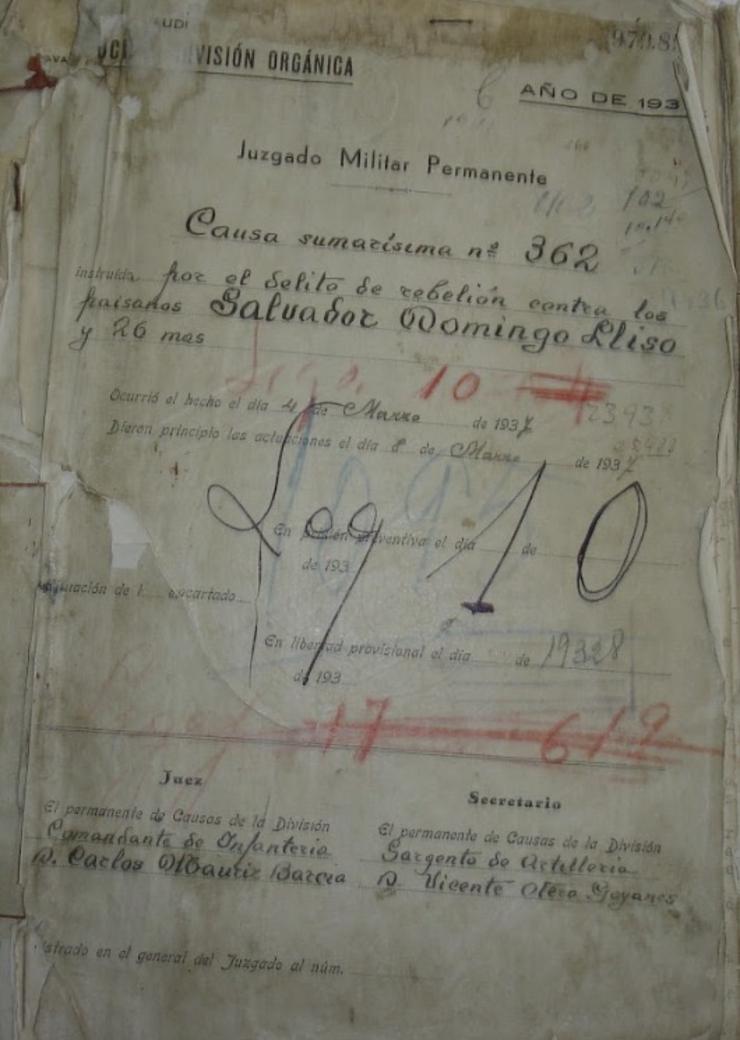 UDI
VISIÓN ORGÁNICA
6 AÑO DE 193
Juzgado Militar Permanente
102
Causa sumarísima nº 362
instruída por el delito de rebelión contra los
paisanos Salvador Domingo Lliso
y 26 mas
10
Ocurrió el hecho el día 4 de Marzo de 1937
Dieron principio las actuaciones el día 8 de Marzo de 1937
Leg 10
En prisión preventiva el día de
de 193
encartado
En libertad provisional el día de 19328
de 193
17 619
Juez
Secretario
El permanente de Causas de la División
Comandante de Infantería
D. Carlos Barcia
El permanente de Causas de la División
Sargento de Artillería
D. Vicente Otero Goyanes
strado en el general del Juzgado al núm.